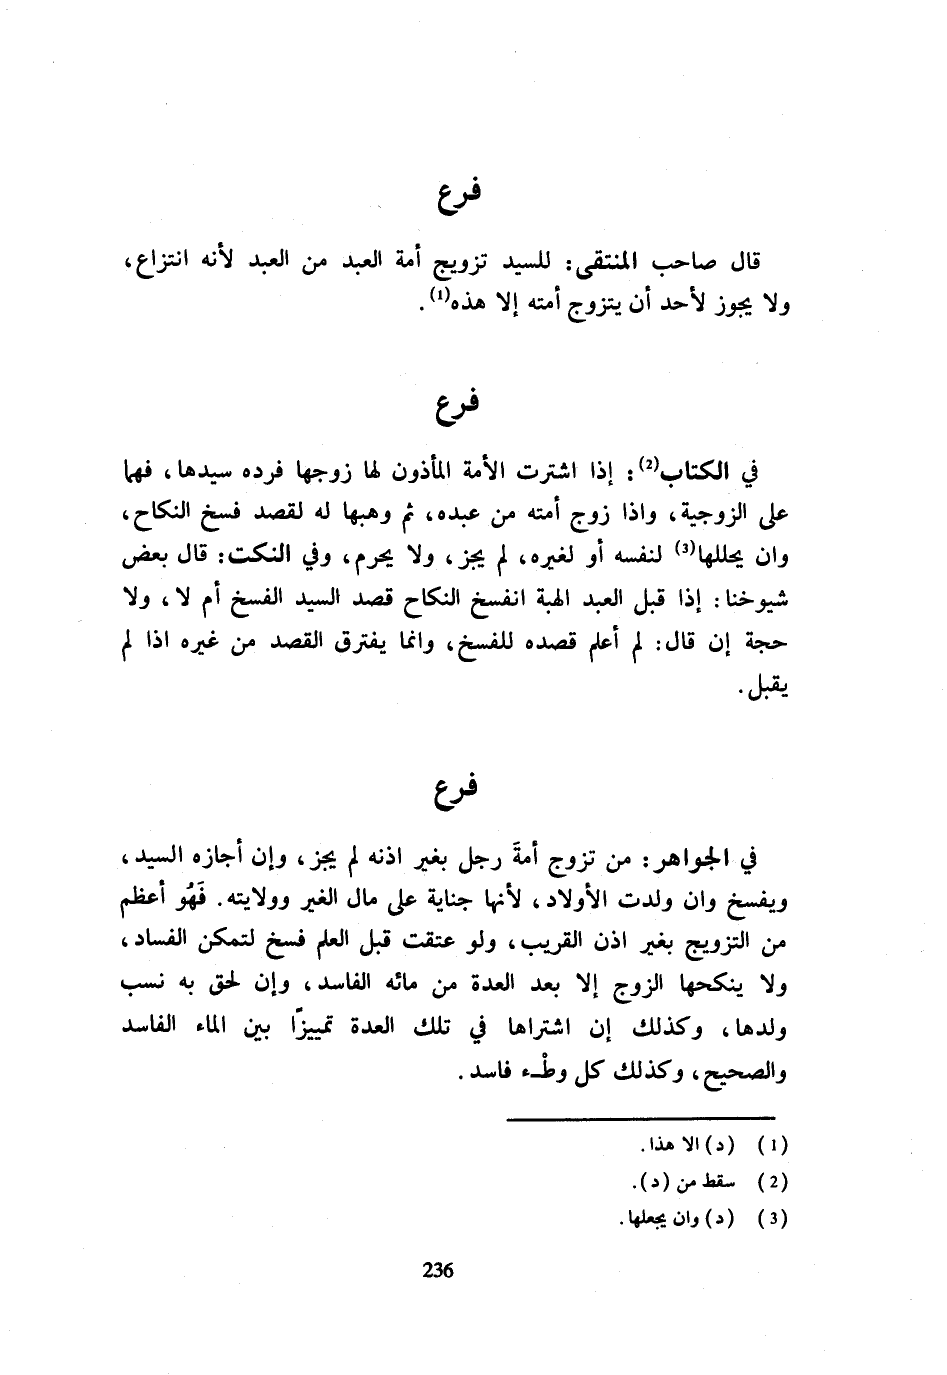 فرع
قال صاحب المنتقى: للسيد تزويج أمة العبد من العبد لأنه انتزاع،
ولا يجوز لأحد أن يتزوج أمته إلا هذه(1).
فرع
في الكتاب(2): إذا اشترت الأمة المأذون لها زوجها فرده سيدها، فهما
على الزوجية، واذا زوج أمته من عبده، ثم وهبها له لقصد فسخ النكاح،
وان يحللها(3) لنفسه أو لغيره، لم يجز، ولا يحرم، وفي النكت: قال بعض
شيوخنا: إذا قبل العبد الهبة انفسخ النكاح قصد السيد الفسخ أم لا، ولا
حجة إن قال: لم أعلم قصده للفسخ، وانما يفترق القصد من غيره اذا لم
يقبل.
فرع
في الجواهر: من تزوج أمةَ رجل بغير اذنه لم يجز، وإن أجازه السيد،
ويفسخ وان ولدت الأولاد، لأنها جناية على مال الغير وولايته. فَهُو أعظم
من التزويج بغير اذن القريب، ولو عتقت قبل العلم فسخ لتمكن الفساد،
ولا ينكحها الزوج إلا بعد العدة من مائه الفاسد، وإن لحق به نسب
ولدها، وكذلك إن اشتراها في تلك العدة تمييزًا بين الماء الفاسد
والصحيح، وكذلك كل وطْء فاسد.
(1) (د) الا هذا.
(2) سقط من (د).
(3) (د) وان يجعلها.
236